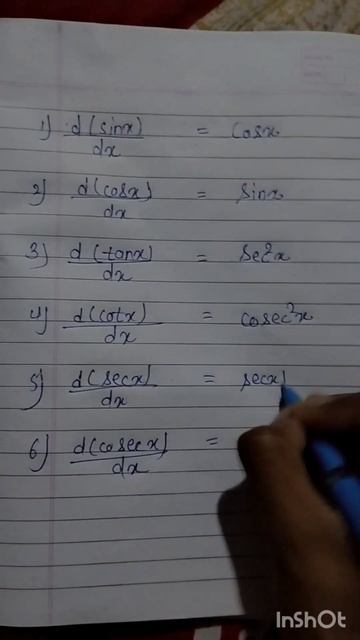 1) d(sinx)/dx = cosx
2) d(cosx)/dx = sinx
3) d(tanx)/dx = sec²x
4) d(cotx)/dx = cosec²x
5) d(secx)/dx = secx
6) d(cosecx)/dx =
InShOt